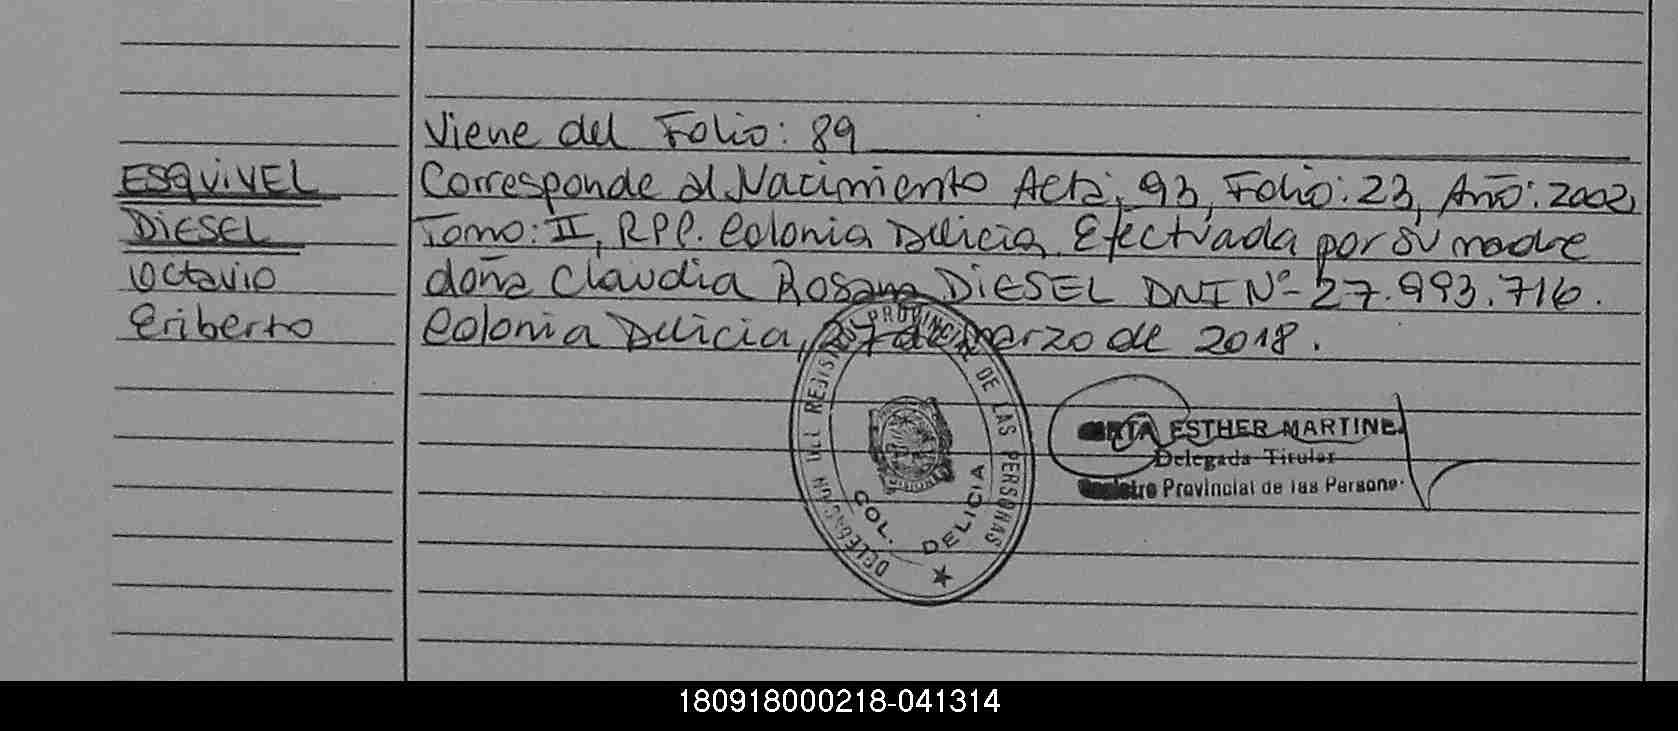 Viene del Folio: 89
ESQUIVEL Corresponde al Nacimiento Acta: 93, Folio: 23, Año: 2002,
DIESEL Tomo: II, RPP. Colonia Delicia. Efectuada por su madre
Octavio doña Claudia Rosana DIESEL DNI Nº- 27.993.716.
Eriberto Colonia Delicia, 27 de marzo de 2018.
DELEGACION DEL REGISTRO PROVINCIAL DE LAS PERSONAS
COL. DELICIA
ESTHER MARTINE
Delegada Titular
Provincial de las Persona
180918000218-041314